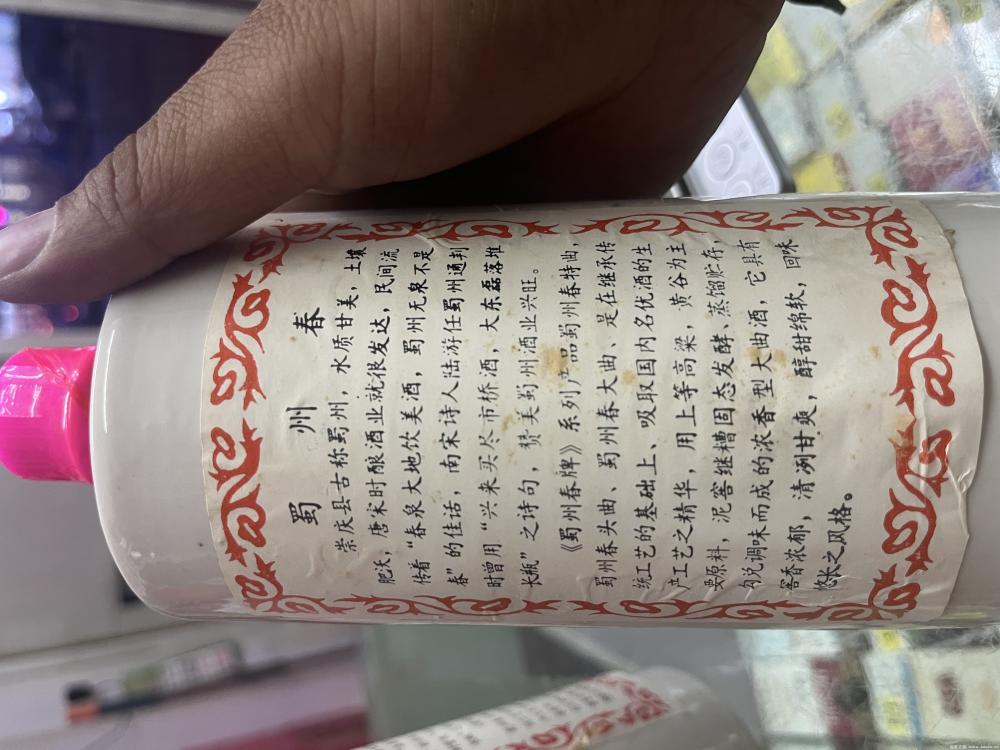 蜀 州 春
崇庆县古称蜀州，水质甘美，土壤
肥沃，唐宋时酿酒业就很发达，民间流
传着“春泉大地饮美酒，蜀州无泉不是
春”的佳话，南宋诗人陆游任蜀州通判
时曾用“兴来买尽市桥酒，大东磊落堆
长瓶”之诗句，赞美蜀州酒业兴旺。
《蜀州春牌》系列产品蜀州春特曲，
蜀州春头曲、蜀州春大曲、是在继承传
统工艺的基础上、吸取国内名优酒的生
产工艺之精华，用上等高粱，黄谷为主
要原料，泥窖继糟固态发酵、蒸馏贮存，
勾兑调味而成的浓香型大曲酒，它具有
窖香浓郁，清冽甘爽，醇甜绵软，回味
悠长之风格。